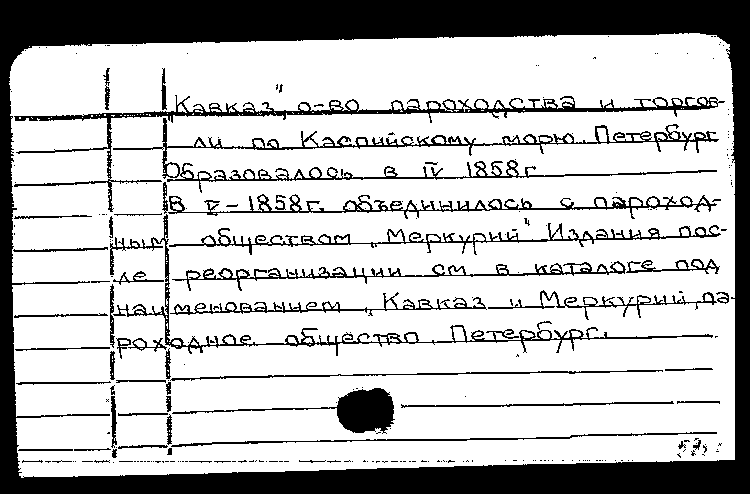 „Кавказ", о-во пароходства и торгов-
ли по Каспийскому морю. Петербург
Образовалось в IV 1858г
В V-1858г. объединилось с пароход-
ным обществом „Меркурий" Издания пос-
ле реорганизации см. в каталоге под
наименованием „Кавказ и Меркурий, па-
роходное общество. Петербург.